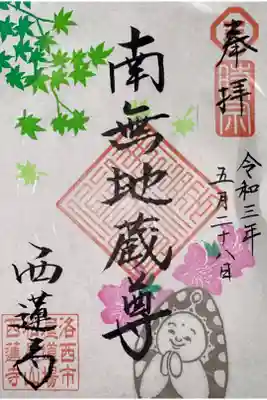 奉拝
令和三年
五月二十八日
南無地蔵尊
西蓮寺
洛西市
西蓮寺